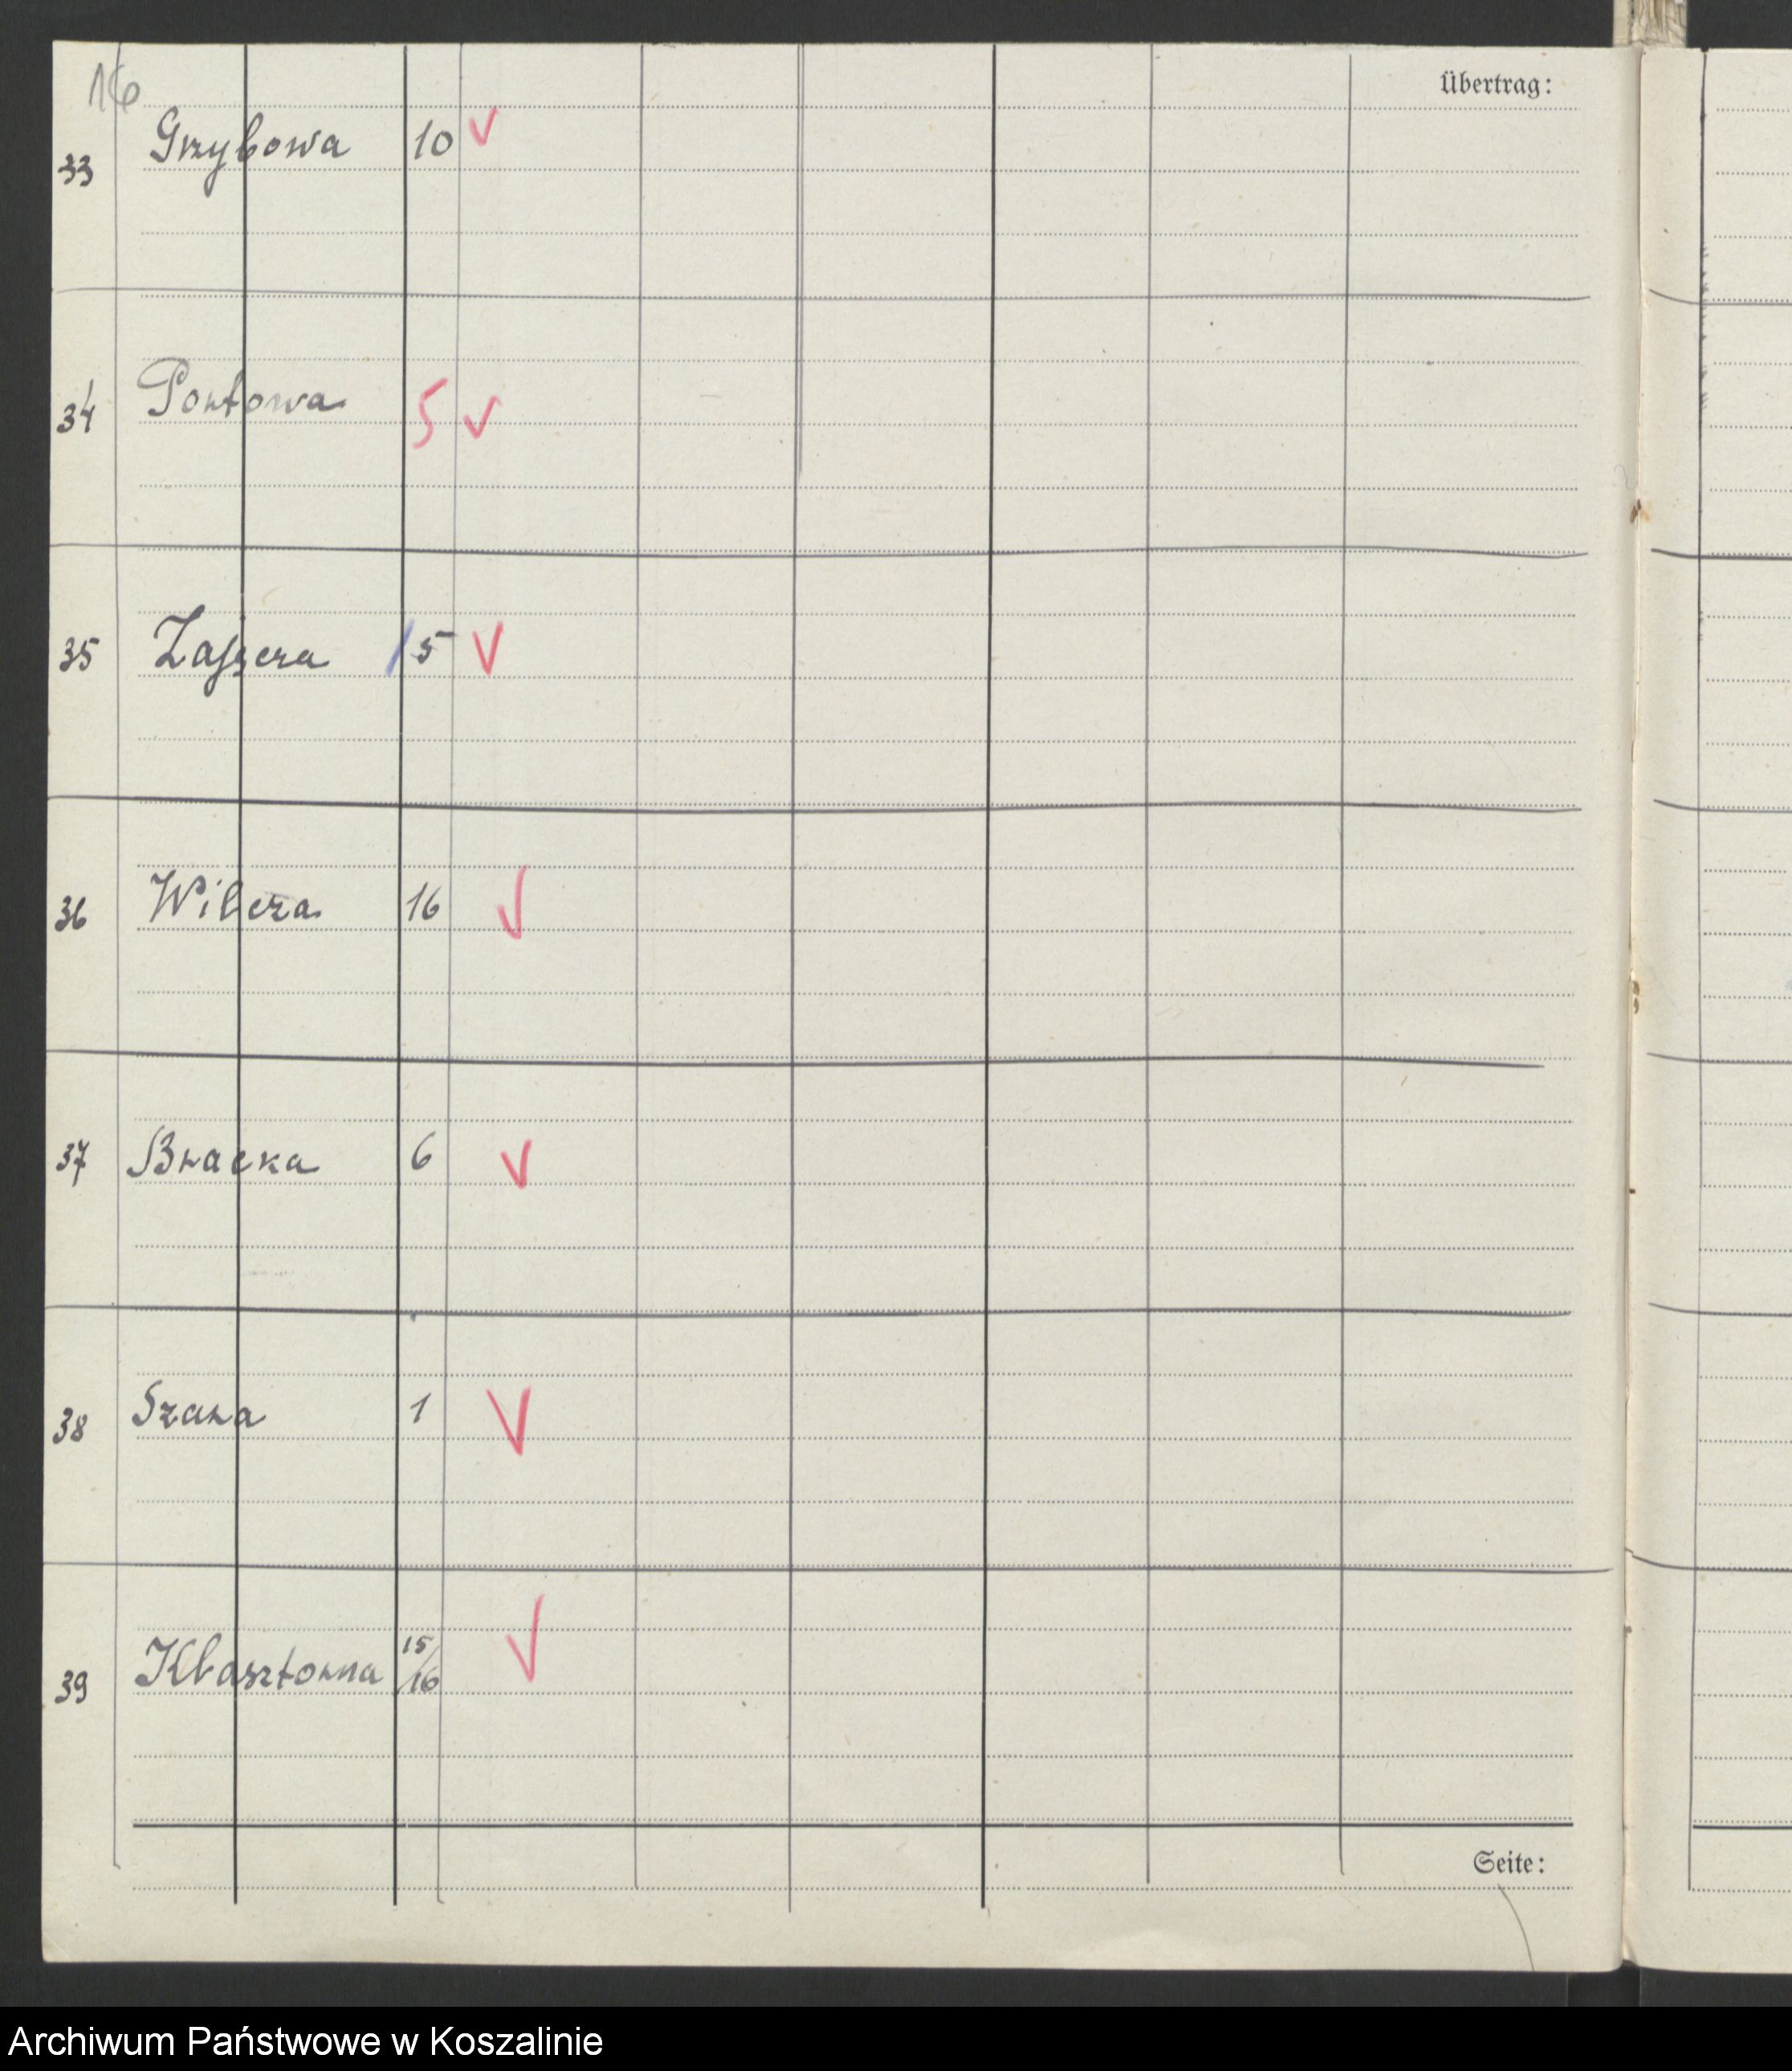 16
Übertrag:
33 Grzybowa 10 ✓
34 Portowa 5 ✓
35 / 5 ✓
36 Wilcza 16 ✓
37 Bracka 6 ✓
38 Szara 1 ✓
39 Klasztorna 15/16 ✓
Seite:
Archiwum Państwowe w Koszalinie